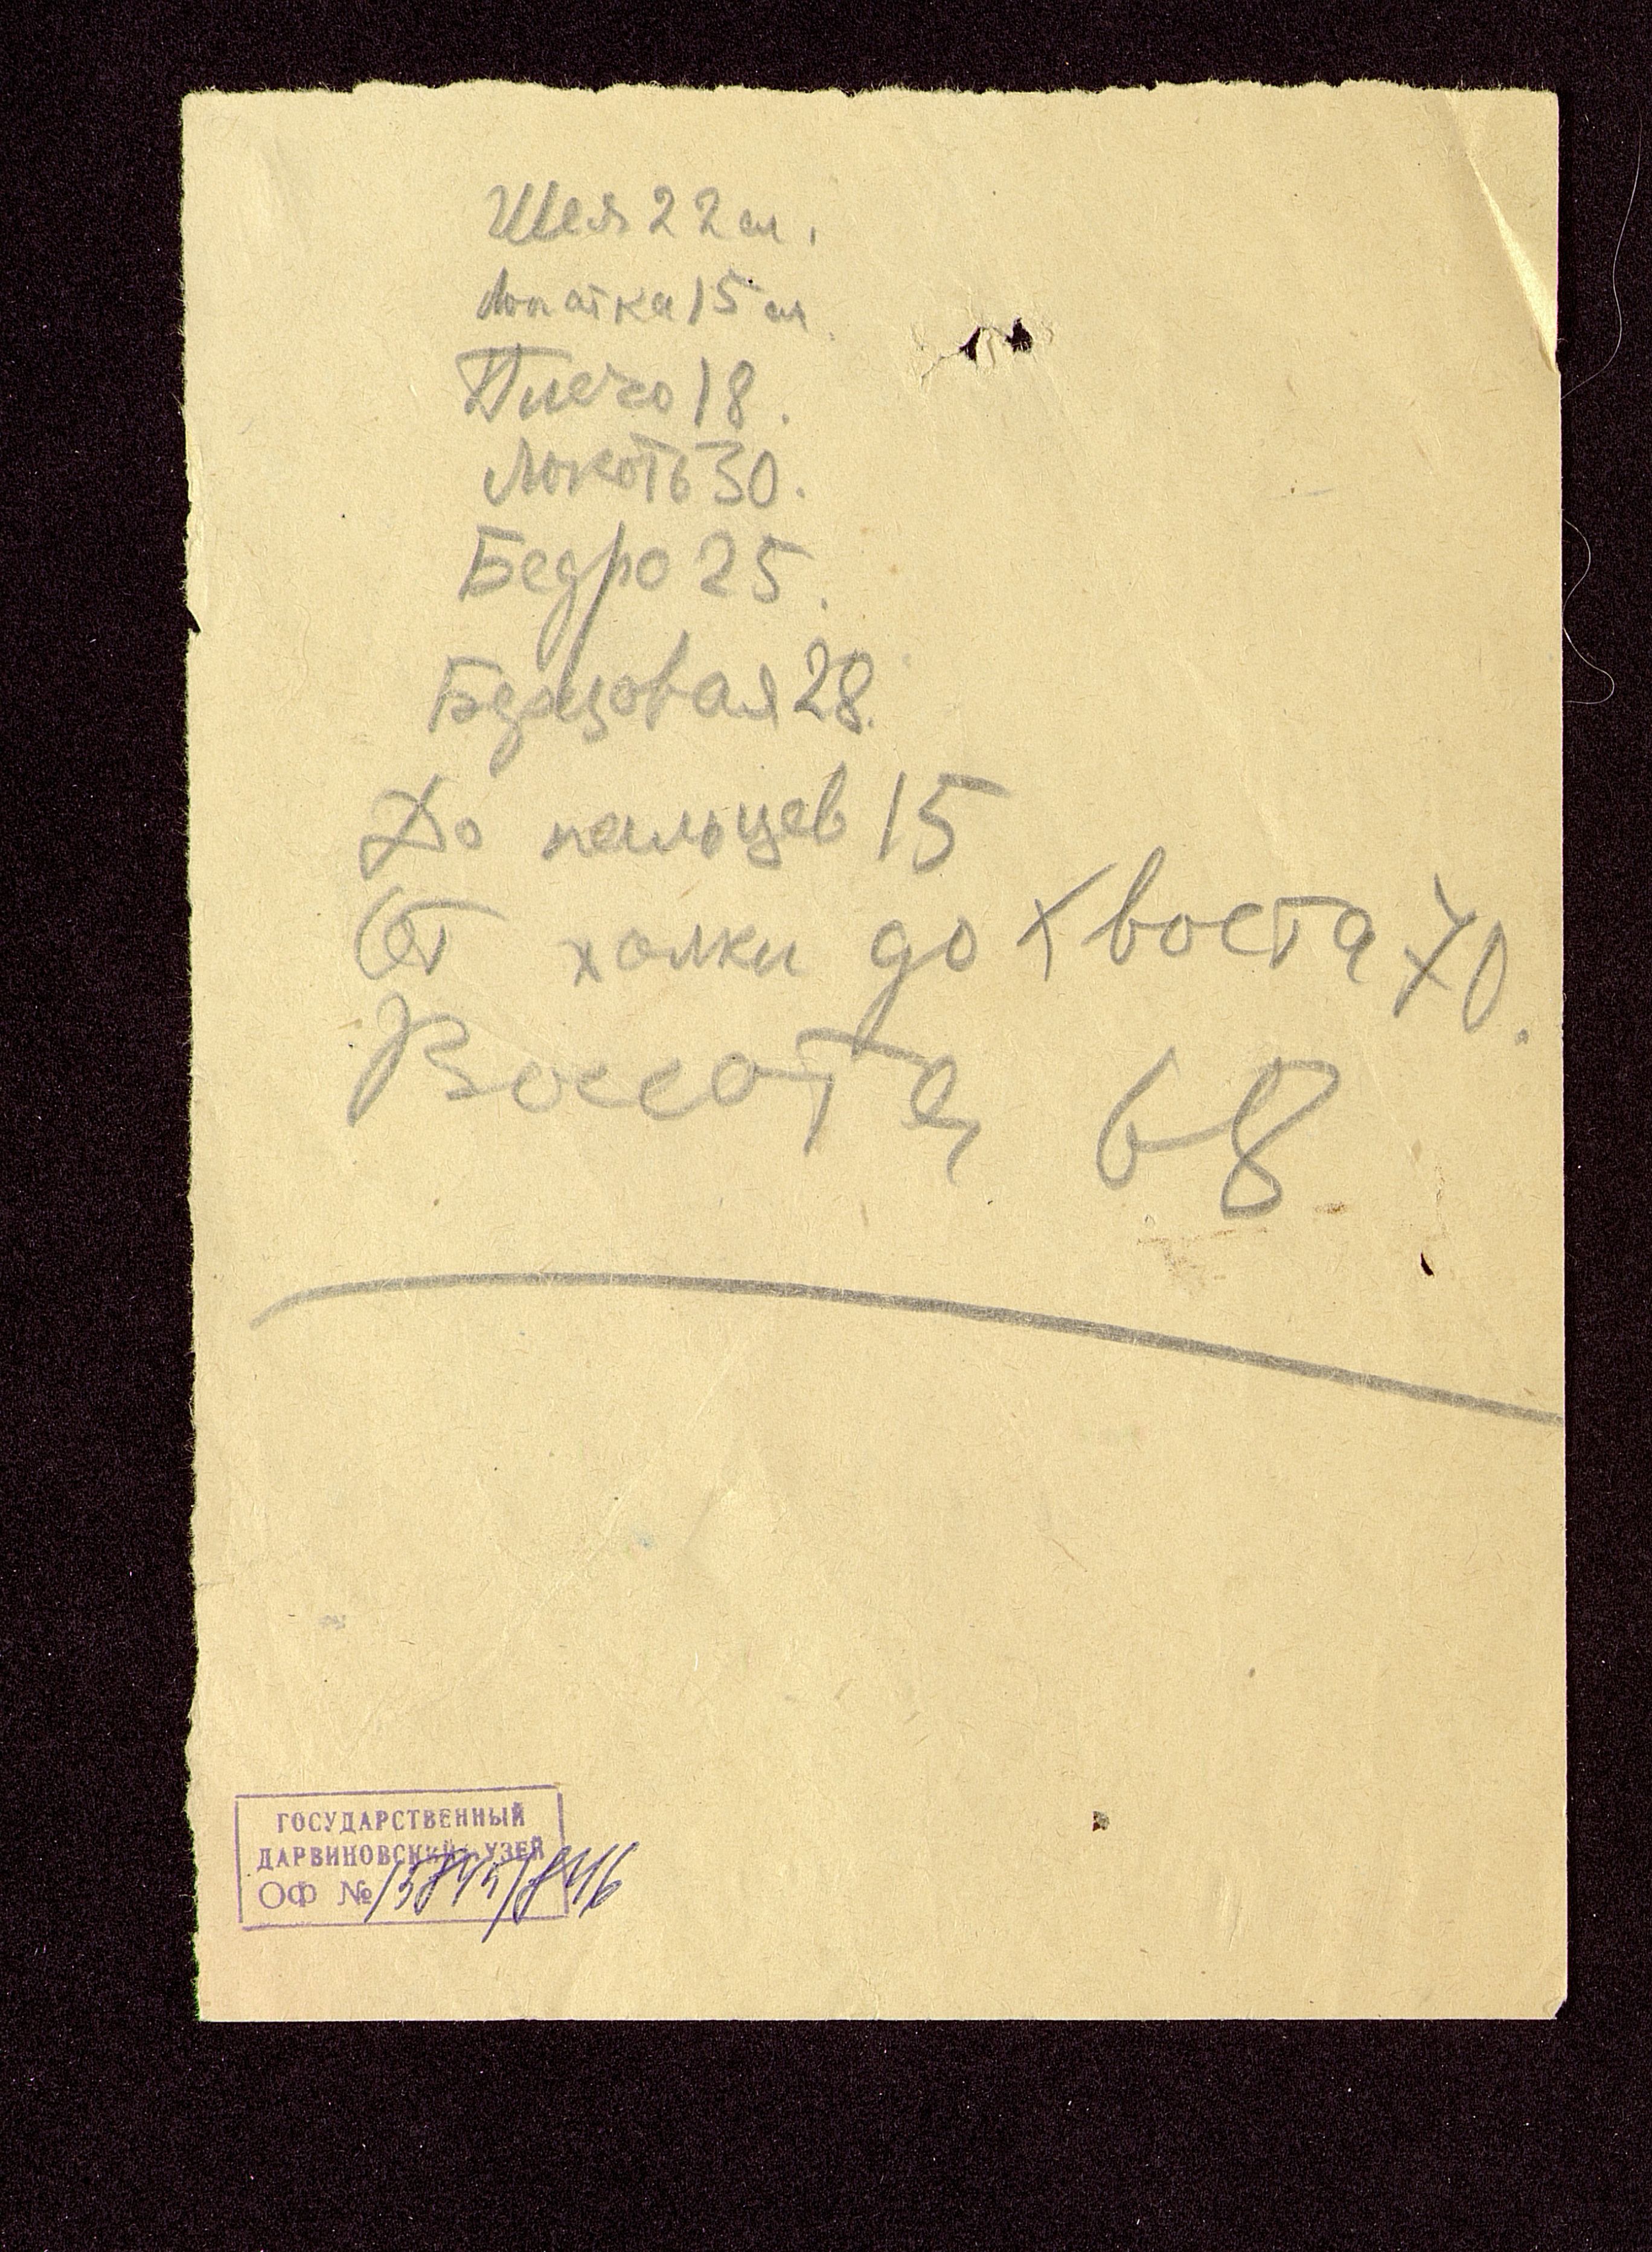 Шея 22 см.
Лопатка 15 см.
Плечо 18.
Локоть 30.
Бедро 25.
Бедцовая 28.
До пальцев 15
От холки до хвоста 70.
Воссота 68
ГОСУДАРСТВЕННЫЙ
ДАРВИНОВСКИЙ МУЗЕЙ
ОФ №